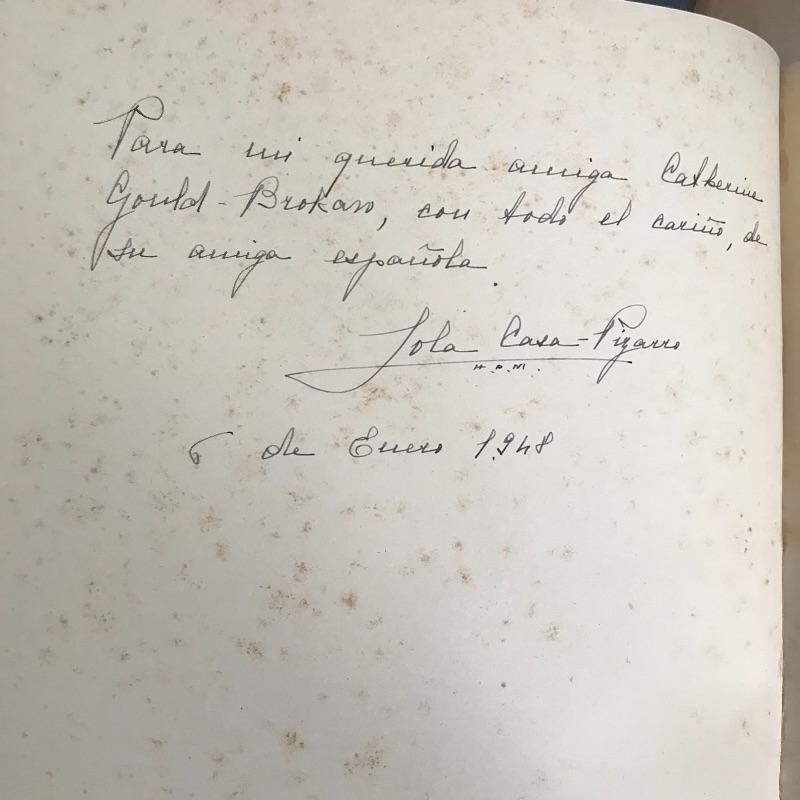 Para mi querida amiga Catherine
Gould-Brokaw, con todo el cariño, de
su amiga española.
Lola Casa-Pizarro
H.P.M.
6 de Enero 1948